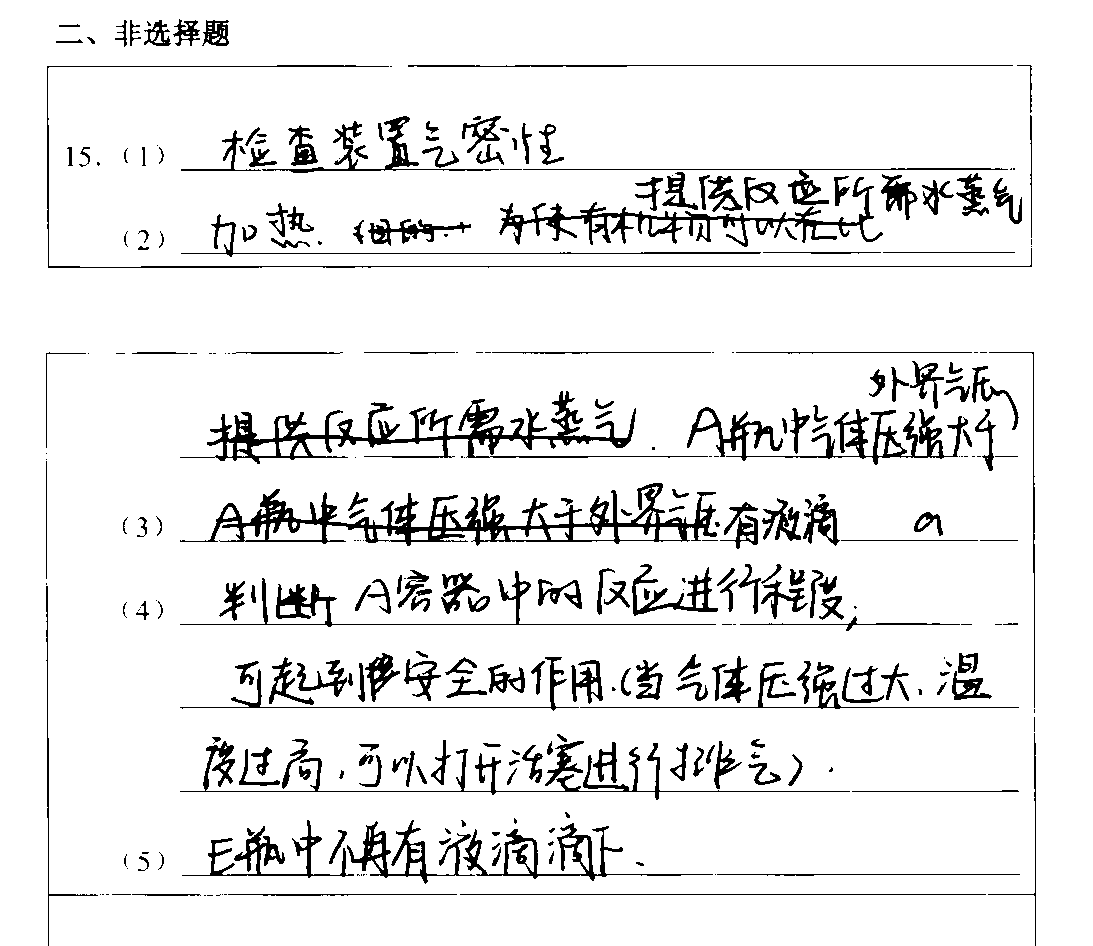 二、非选择题
15.（1） 检查装置气密性
提供反应所需水蒸气
（2） 加热.
外界气压
提供反应所需水蒸气. A瓶中气体压强大于
（3） A瓶中气体压强大于外界气压有液滴 a
（4） 判断A容器中的反应进行程度;
可起到安全的作用.(当气体压强过大、温
度过高,可以打开活塞进行排气).
（5） E瓶中不再有液滴滴下.